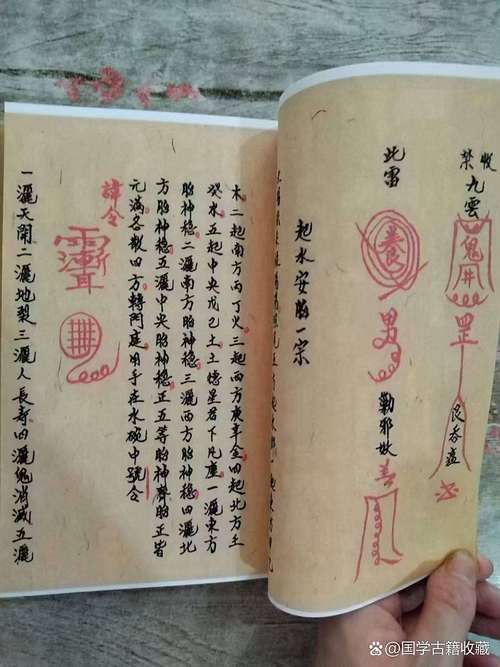 收
禁
九雲
鬼井
罡
此雷
養
男
勒邪妖
起水安胎一宗
木二起南方丙丁火三起西方庚辛金四起北方壬
癸水五起中央戊己土土德星君下凡塵一灑東方
胎神穩二灑南方胎神穩三灑西方胎神穩四灑北
方胎神穩五灑中央胎神穩正五等胎神齊胎正皆
元滿各散四方轉門庭用手在水碗中號令
諱令
一灑天開二灑地裂三灑人長寿四灑鬼消滅五灑
@国学古籍收藏